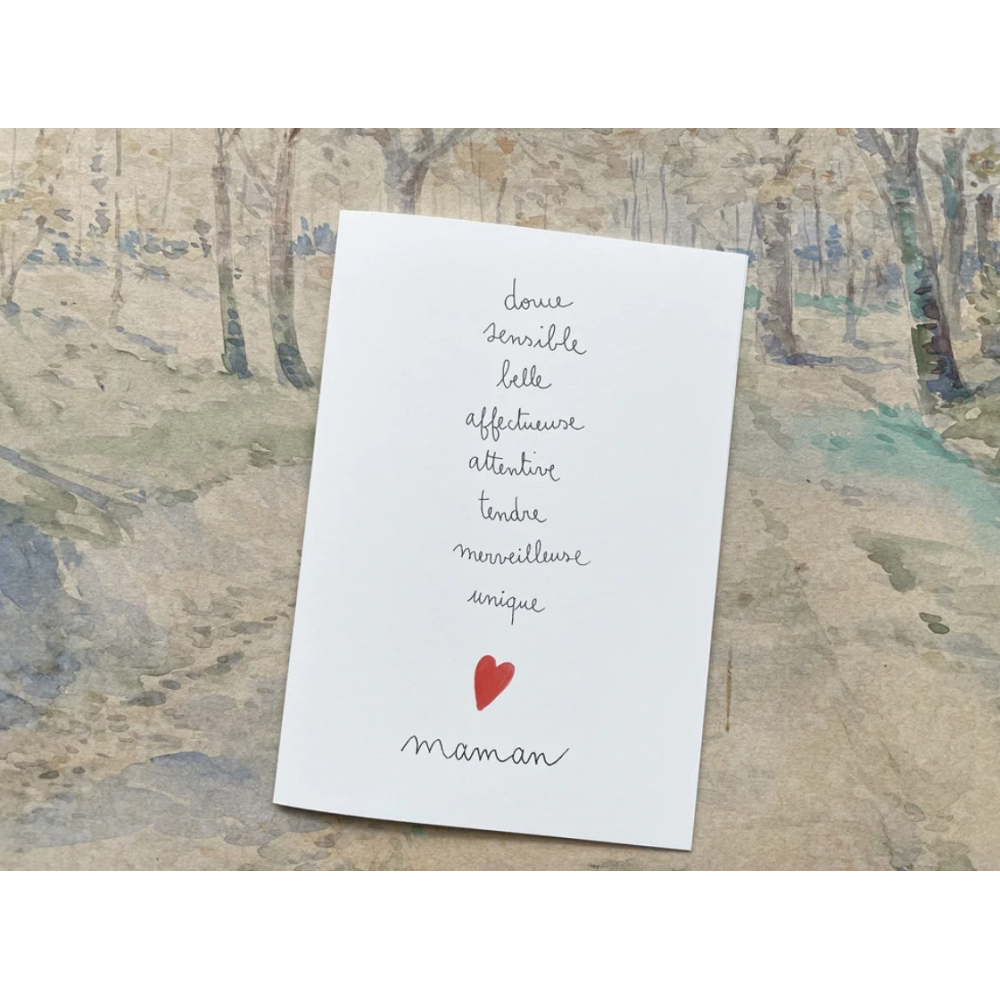 douce
sensible
belle
affectueuse
attentive
tendre
merveilleuse
unique
maman